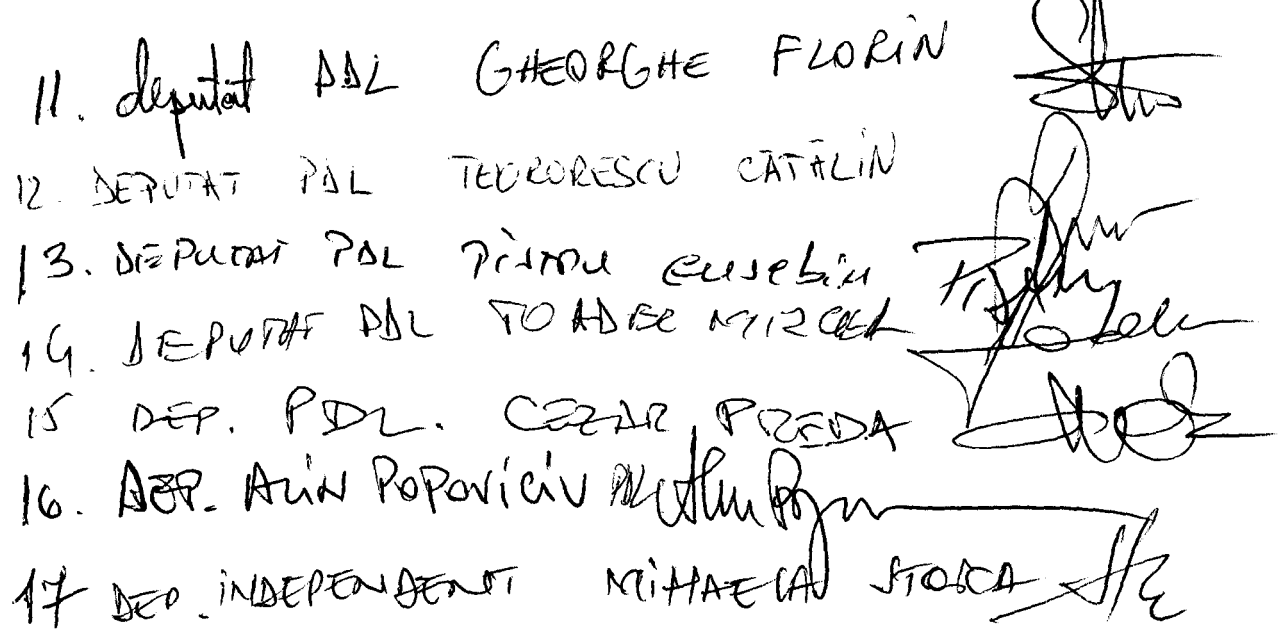 11. deputat PDL GHEORGHE FLORIN
12. DEPUTAT PDL TEODORESCU CĂTĂLIN
13. DEPUTAT PDL Pistru Eusebiu
14. DEPUTAT PDL TOADER MIRCEA
15 DEP. PDL. CEZAR PREDA
16. DEP. ALIN POPOVICIU PDL
17 DEP. INDEPENDENT MIHAELA STOICA